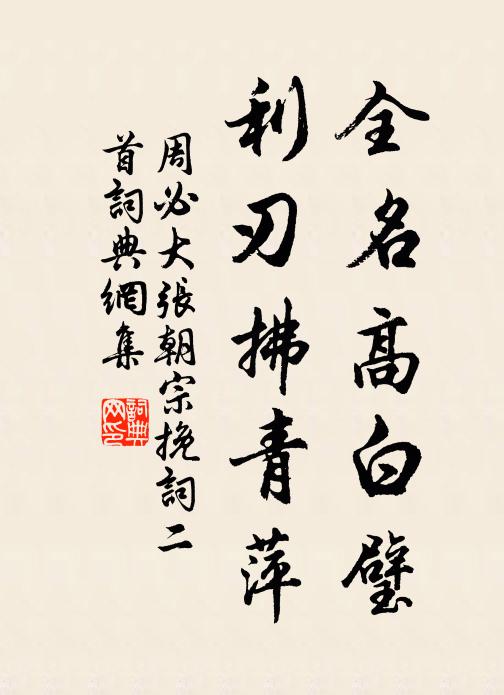 全名高白璧
利刃拂青萍
周必大張朝宗挽詞二
首詞典網集
詞典
網印